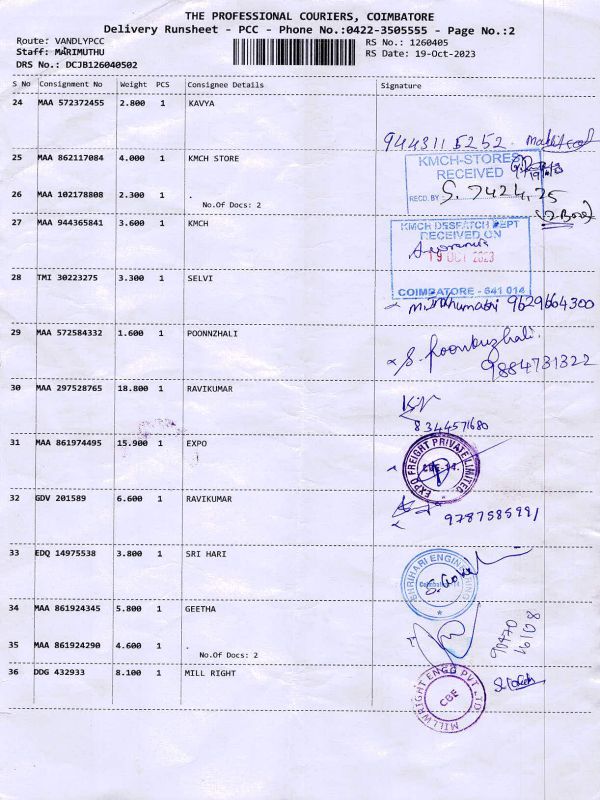 THE PROFESSIONAL COURIERS, COIMBATORE
Delivery Runsheet - PCC - Phone No.:0422-3505555 - Page No.:2
Route: VANDLYPCC
Staff: MARIMUTHU
DRS No.: DCJB126040502
RS No.: 1260405
RS Date: 19-Oct-2023
S No Consignment No Weight PCS Consignee Details Signature
24 MAA 572372455 2.800 1 KAVYA
9443115252
25 MAA 862117084 4.000 1 KMCH STORE
KMCH-STORES
RECEIVED
RECD. BY S. 7424
26 MAA 102178808 2.300 1 .
No.Of Docs: 2
27 MAA 944365841 3.600 1 KMCH
KMCH DESPATCH DEPT
RECEIVED ON
19 OCT 2023
COIMBATORE - 641 014
28 TMI 30223275 3.300 1 SELVI
9629664300
29 MAA 572584332 1.600 1 POONNZHALI
S. Poonkuzhali.
9884731322
30 MAA 297528765 18.800 1 RAVIKUMAR
8344571680
31 MAA 861974495 15.900 1 EXPO
EXPO FREIGHT PRIVATE LIMITED
CBE-14.
32 GDV 201589 6.600 1 RAVIKUMAR
9787585991
33 EDQ 14975538 3.800 1 SRI HARI
SHRIHARI ENGINEERING
34 MAA 861924345 5.800 1 GEETHA
90470
16108
35 MAA 861924290 4.600 1 .
No.Of Docs: 2
36 DDG 432933 8.100 1 MILL RIGHT
MILLWRIGHT ENGG PVT LTD
CBE